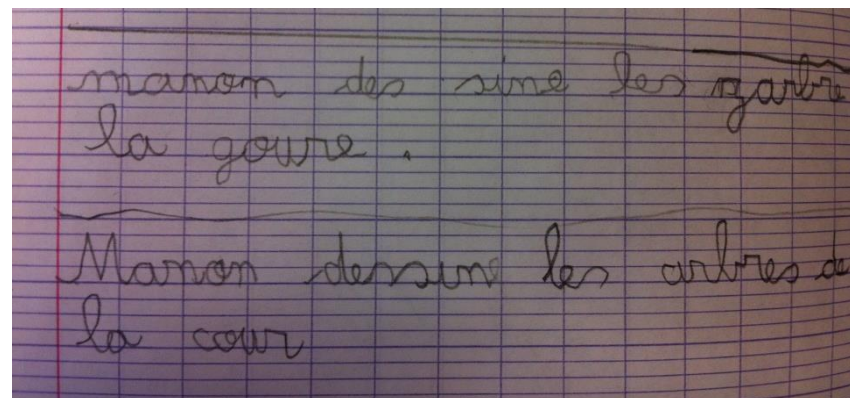 manon des sine les zarbre
la goure.
Manon dessine les arbres de
la cour